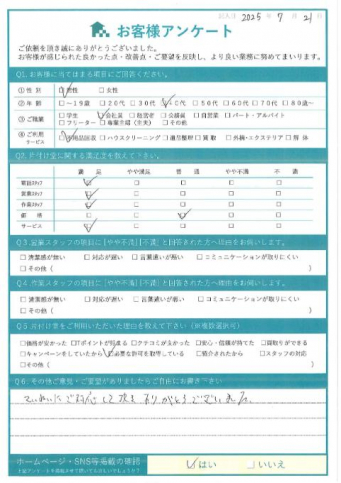 記入日 2025年7月21日
お客様アンケート
ご依頼を頂き誠にありがとうございました。
お客様が感じられた良かった点・改善点・ご要望を反映し、より良い業務に努めてまいります。
Q1.お客様に当てはまる項目にご回答ください。
①性別 □男性 □女性
②年齢 □~19歳 □20代 □30代 □40代 □50代 □60代 □70代 □80歳~
③ご職業 □学生 □会社員 □経営者 □公務員 □自営業 □パート・アルバイト
□フリーター □専業主婦(主夫) □その他
④ご利用サービス □不用品回収 □ハウスクリーニング □遺品整理 □買取 □外構・エクステリア □解体
Q2.片付け堂に関する満足度を教えて下さい。
満足 やや満足 普通 やや不満 不満
電話スタッフ □ □ □ □ □
営業スタッフ □ □ □ □ □
作業スタッフ □ □ □ □ □
価格 □ □ □ □ □
サービス □ □ □ □ □
Q3.営業スタッフの項目に[やや不満][不満]と回答された方へ理由をお伺いします。
□清潔感が無い □対応が遅い □言葉遣いが悪い □コミュニケーションが取りにくい
□その他(
Q4.作業スタッフの項目に[やや不満][不満]と回答された方へ理由をお伺いします。
□清潔感が無い □対応が遅い □言葉遣いが悪い □コミュニケーションが取りにくい
□その他(
Q5.片付け堂をご利用いただいた理由を教えて下さい(※複数選択可)
□価格が安かった □Tポイントが貯まる □クチコミが良かった □安心・信頼が持てた □買取りができる
□キャンペーンをしていたから □必要な許可を取得している □紹介されたから □スタッフの対応
□その他(
Q6.その他ご意見・ご要望がありましたらご自由にお書き下さい
ていねいにご対応して頂きありがとうございました。
ホームページ・SNS等掲載の確認
□はい □いいえ